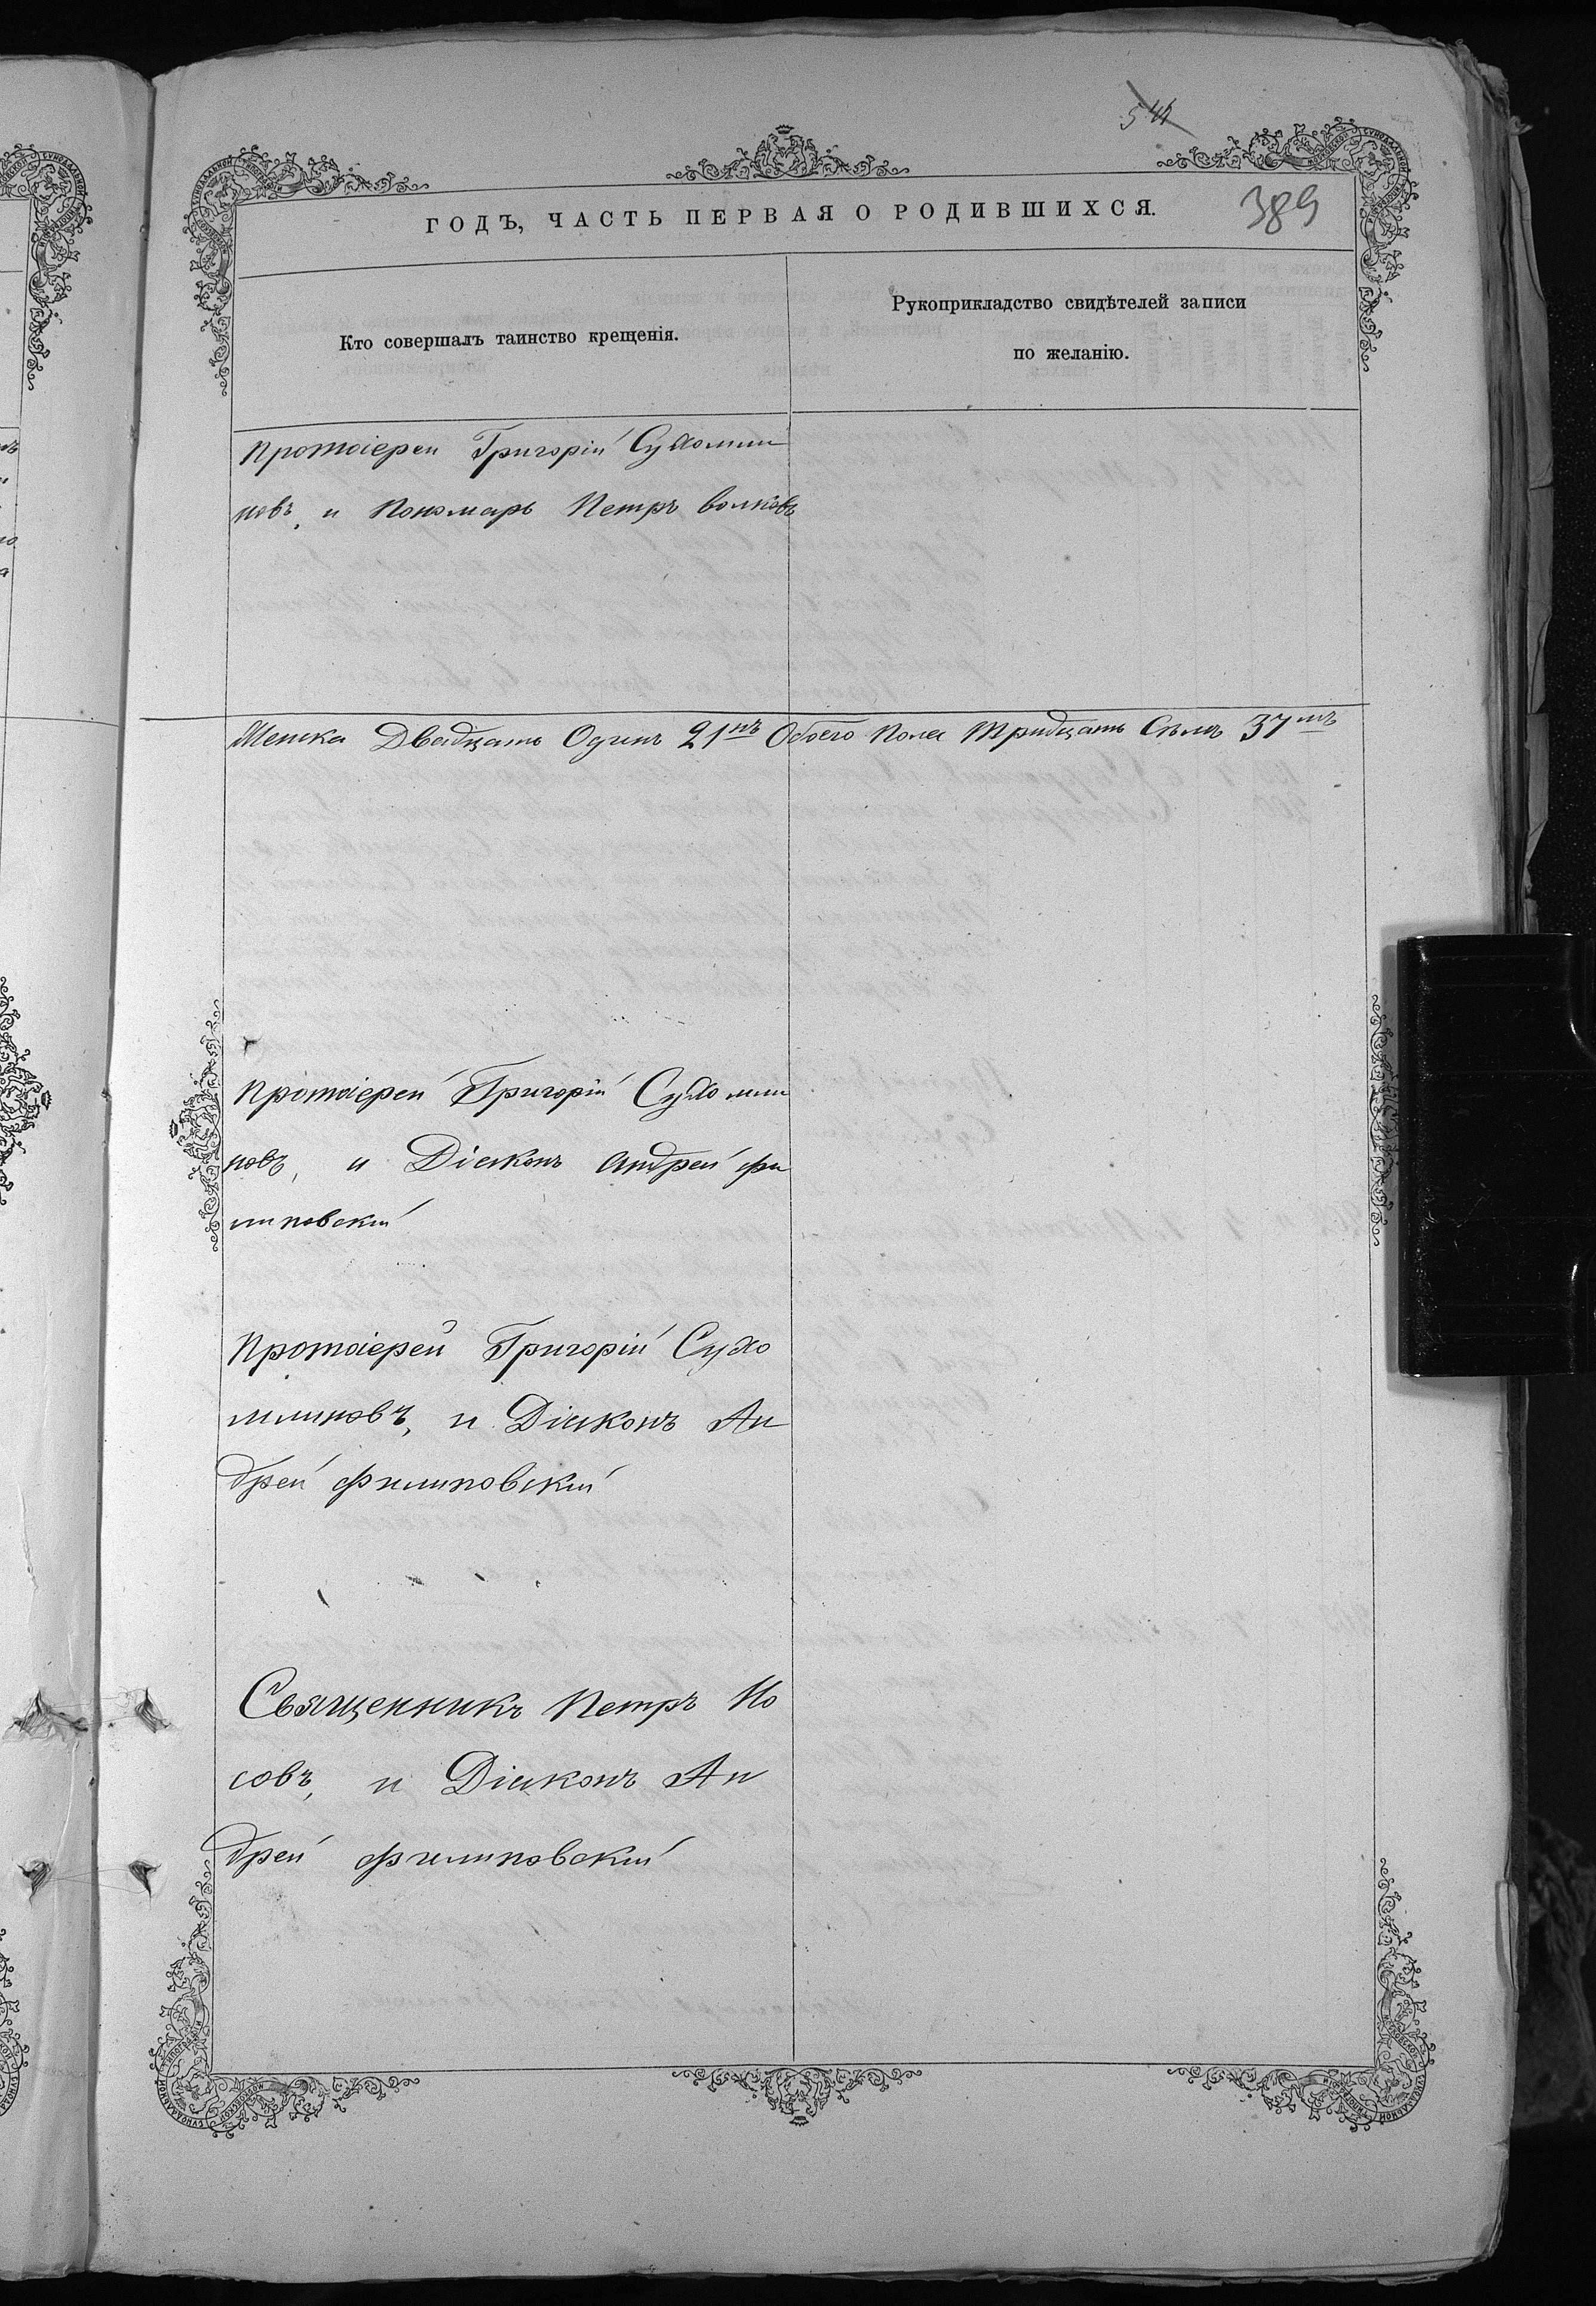 541
389
ГОДЪ, ЧАСТЬ ПЕРВАЯ О РОДИВШИХСЯ.
Кто совершалъ таинство крещенія.
Рукоприкладство свидѣтелей записи
по желанію.
Протоіерей Григорій Сухомли
новъ, и Пономарь Петръ волковъ
Женска Двадцать Одинъ 21нъ Обоего Пола Тридцать Сѣмь 37мь
Протоіерей Григорій Сухомли
новъ, и Діаконъ Андрей фи
липовскій
Протоіерей Григорій Сухо
млиновъ, и Діаконъ Ан
дрей филиповскій
Священникъ Петръ Но
совъ, и Діаконъ Ан
дрей филиповскій